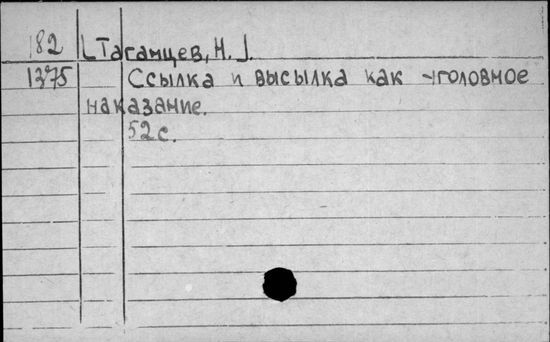 182
Таганцев, Н. J.
1375 Ссылка и высылка как уголовное
наказание.
52 с.